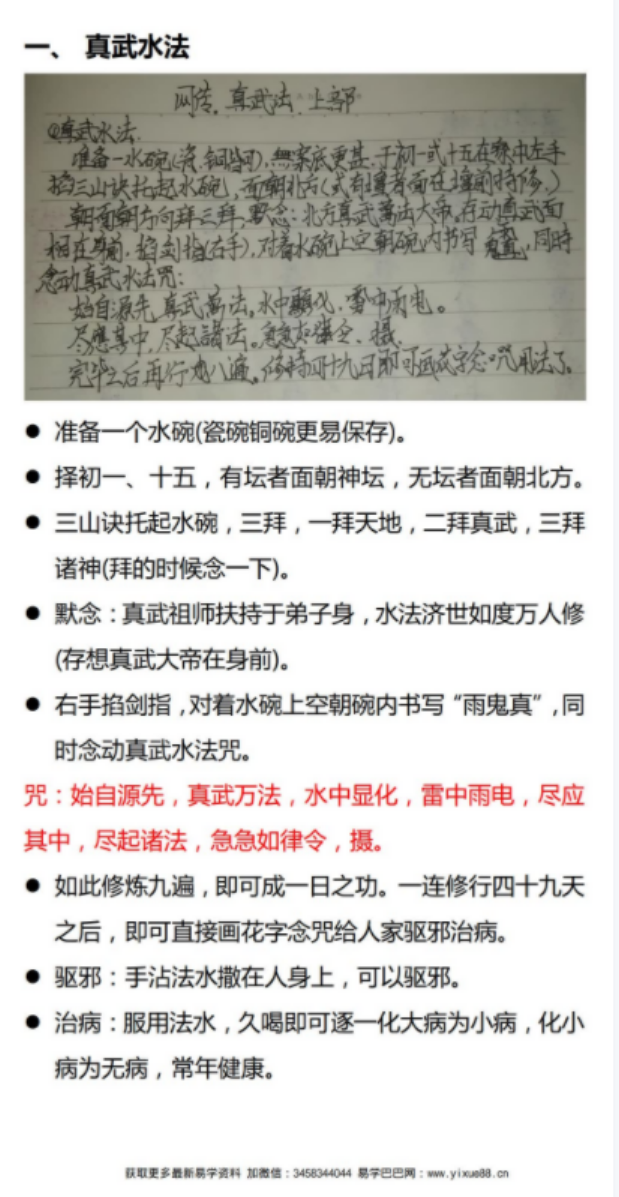 一、 真武水法
网传 真武法 上部
①真武水法
准备一水碗(瓷、铜皆可),無察底更甚,于初一或十五在家中左手
掐三山诀托起水碗,面朝北方(或有壇者面在壇前持修。)
朝面朝方向拜三拜,默念:北方真武萬法大帝。存动真武面
相在身前,掐剑指(右手),对着水碗上空朝碗内书写 ,同時
念动真武水法咒:
始自源先,真武萬法。水中顯化,雷中雨电。
尽應其中,尽起諸法。急急如律令,摄。
完毕之后再行 八遍。修持四十九日即可画花字念咒用法了。
● 准备一个水碗(瓷碗铜碗更易保存)。
● 择初一、十五，有坛者面朝神坛，无坛者面朝北方。
● 三山诀托起水碗，三拜，一拜天地，二拜真武，三拜
诸神(拜的时候念一下)。
● 默念：真武祖师扶持于弟子身，水法济世如度万人修
(存想真武大帝在身前)。
● 右手掐剑指，对着水碗上空朝碗内书写“雨鬼真”，同
时念动真武水法咒。
咒：始自源先，真武万法，水中显化，雷中雨电，尽应
其中，尽起诸法，急急如律令，摄。
● 如此修炼九遍，即可成一日之功。一连修行四十九天
之后，即可直接画花字念咒给人家驱邪治病。
● 驱邪：手沾法水撒在人身上，可以驱邪。
● 治病：服用法水，久喝即可逐一化大病为小病，化小
病为无病，常年健康。
获取更多最新易学资料 加微信：3458344044 易学巴巴网：www.yixue88.cn